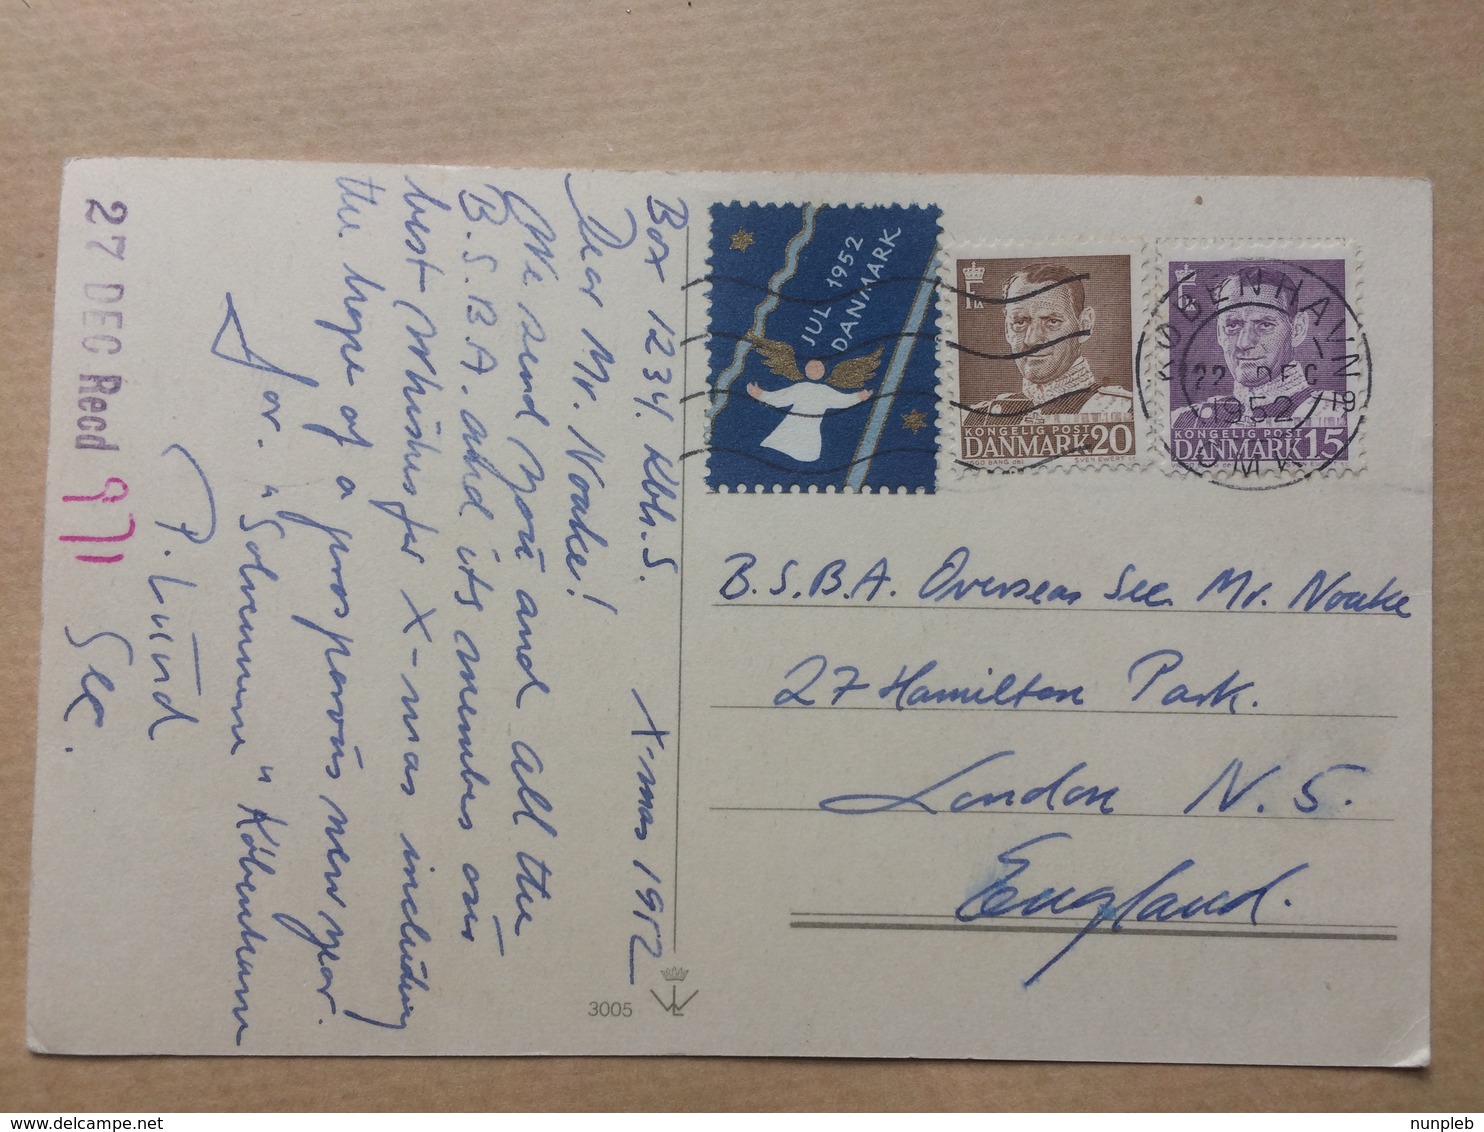 Box 1234. Kbh. S. X-mas 1952
Dear Mr. Noake!
We send you and all the
B.S.B.A. and its members our
best Whishes for X-mas including
the hope of a prosperous new year.
for. "Solvennen" København
P. Lund
Sec.
27 DEC Recd 971
JUL 1952
DANMARK
F IX
KONGELIG POST
DANMARK 20
KONGELIG POST
DANMARK 15
KØBENHAVN
22 DEC
1952
OMK
B.S.B.A. Overseas Sec. Mr. Noake
27 Hamilton Park.
London N. 5.
England.
3005
nunpleb